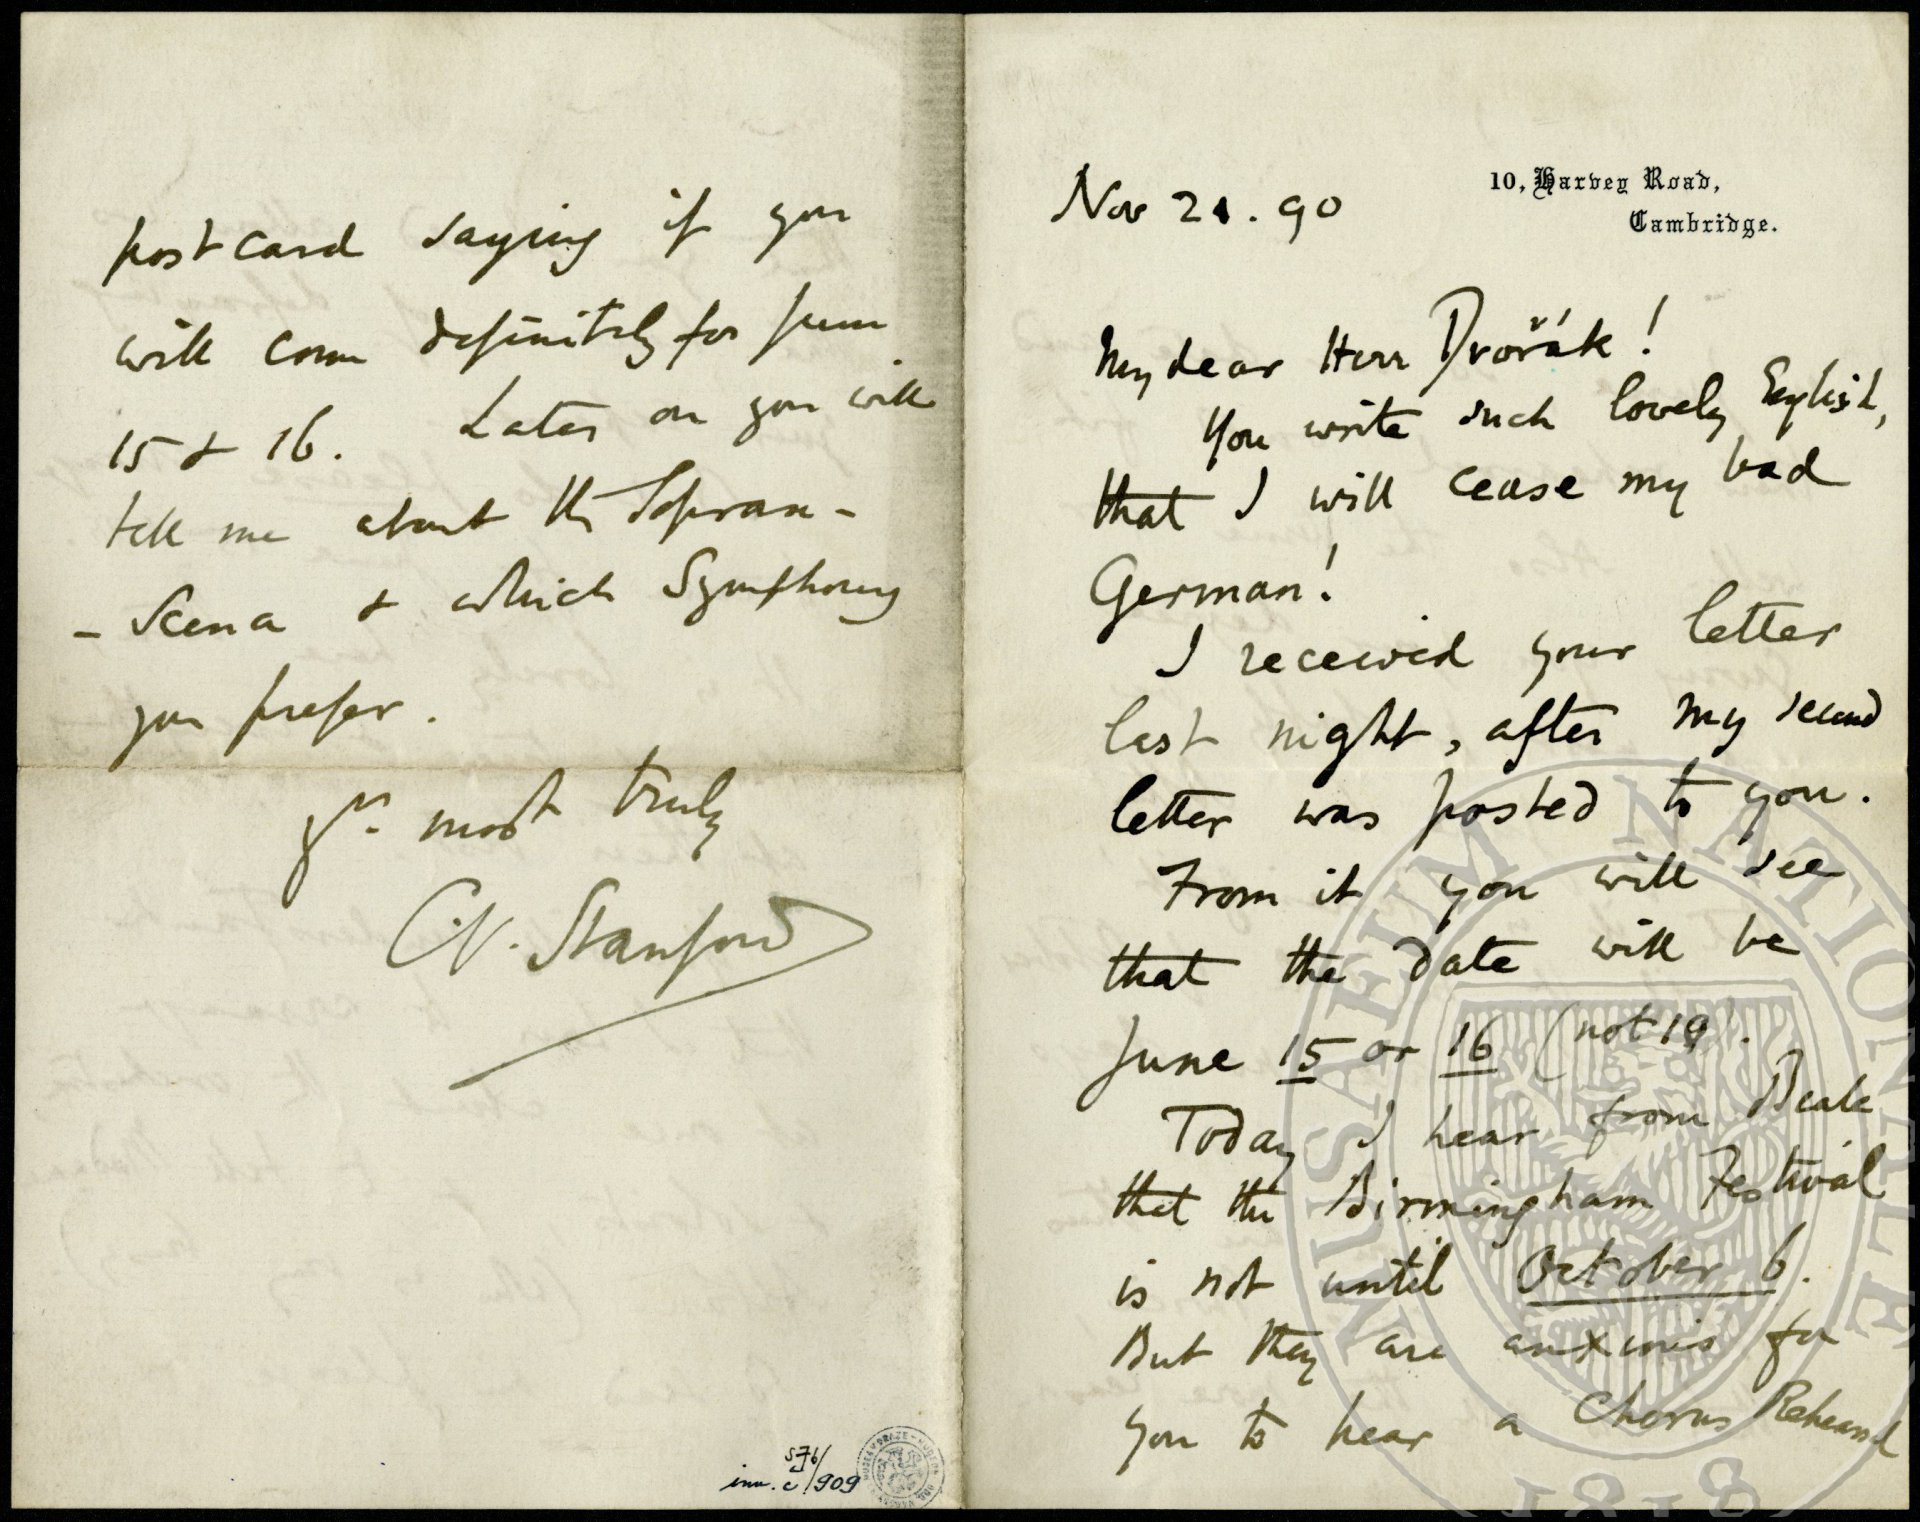 10, Harvey Road,
Cambridge.
Nov 21. 90
My dear Herr Dvořák!
You write such lovely English,
that I will cease my bad
German!
I received your letter
last night, after my second
letter was posted to you.
From it you will see
that the date will be
June 15 or 16 (not 19).
Today I hear from Beale
that the Birmingham Festival
is not until October 6.
But they are anxious for
you to hear a Chorus Rehearsal
postcard saying if you
will come definitely for June
15 & 16. Later on you will
tell me about the Sopran-
- Scena & which Symphony
you prefer.
yrs most truly
C.V. Stanford
inv. č. /909
MUSAEUM NATIONALE
1818